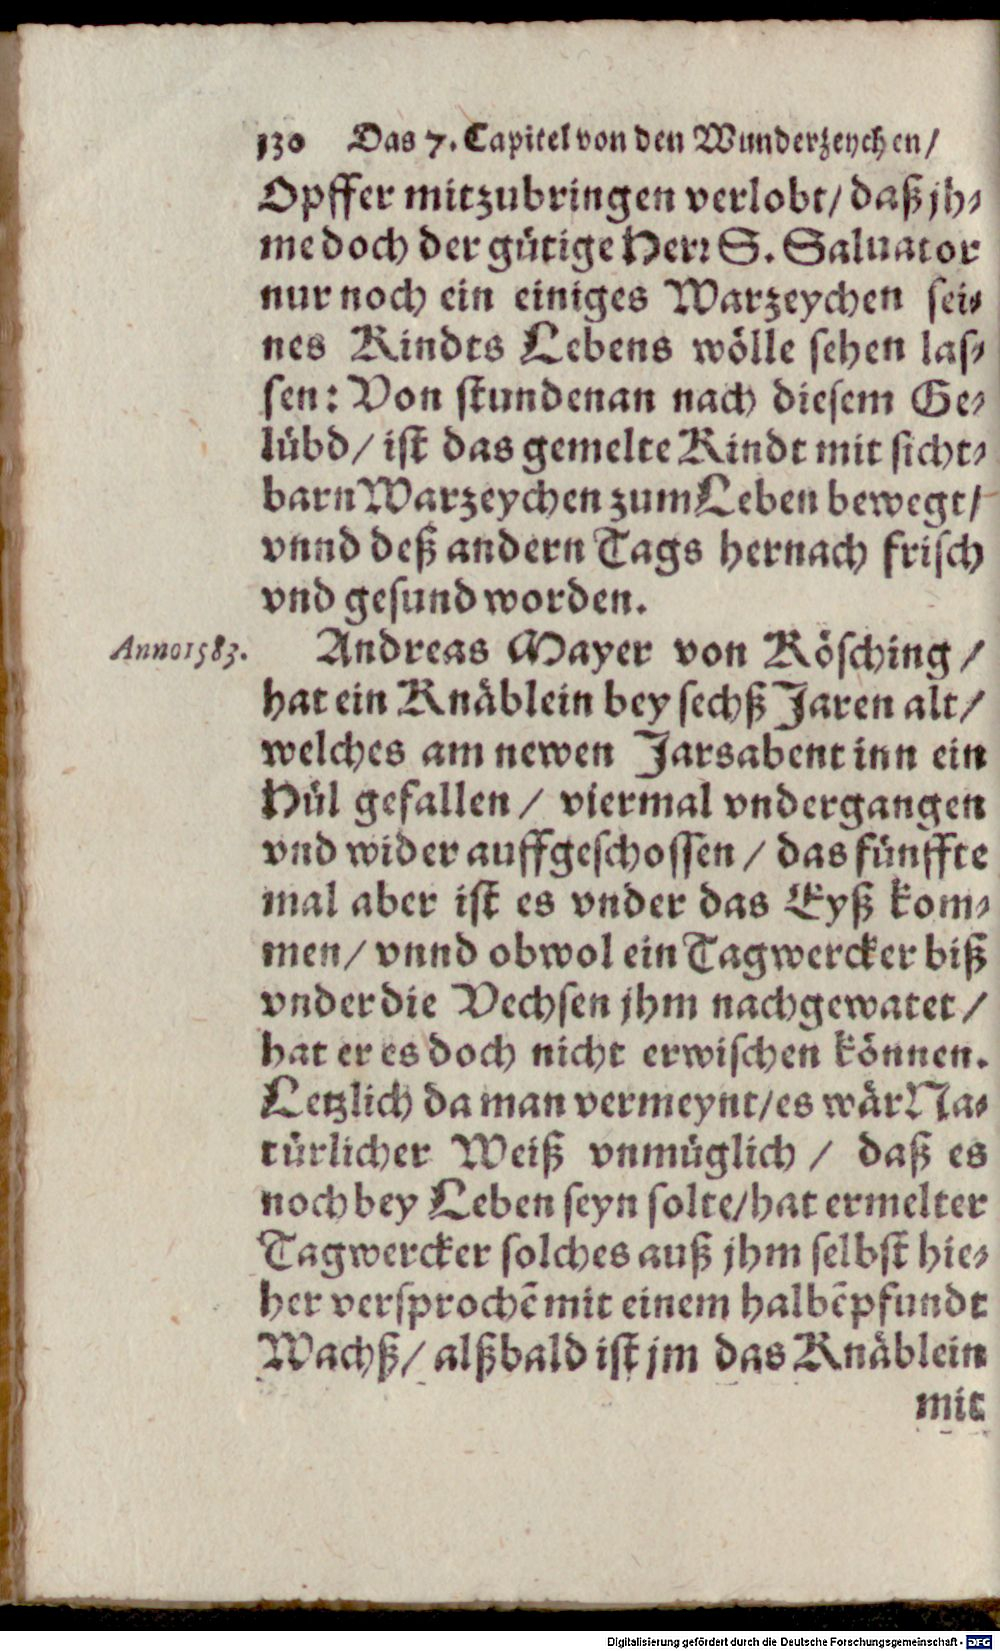 130 Das 7. Capitel von den Wunderzeychen/
Opffer mitzubringen verlobt/ daß jh-
me doch der gütige Herr S. Saluator
nur noch ein einiges Warzeychen sei-
nes Kindts Lebens wölle sehen las-
sen: Von stundenan nach diesem Ge-
lübd/ ist das gemelte Kindt mit sicht-
barn Warzeychen zum Leben bewegt/
vnnd deß andern Tags hernach frisch
vnd gesund worden.
Anno 1583.
Andreas Mayer von Kösching /
hat ein Knäblein bey sechß Jaren alt/
welches am newen Jarsabent inn ein
Hül gefallen / viermal vndergangen
vnd wider auffgeschossen / das fünffte
mal aber ist es vnder das Eyß kom-
men/ vnnd obwol ein Tagwercker biß
vnder die Vechsen jhm nachgewatet /
hat er es doch nicht erwischen können.
Letzlich da man vermeynt/ es wär Na-
türlicher Weiß vnmüglich / daß es
noch bey Leben seyn solte/ hat ermelter
Tagwercker solches auß jhm selbst hie-
her versprochē mit einem halbē pfundt
Wachß/ alßbald ist jm das Knäblein
mit
Digitalisierung gefördert durch die Deutsche Forschungsgemeinschaft - DFG